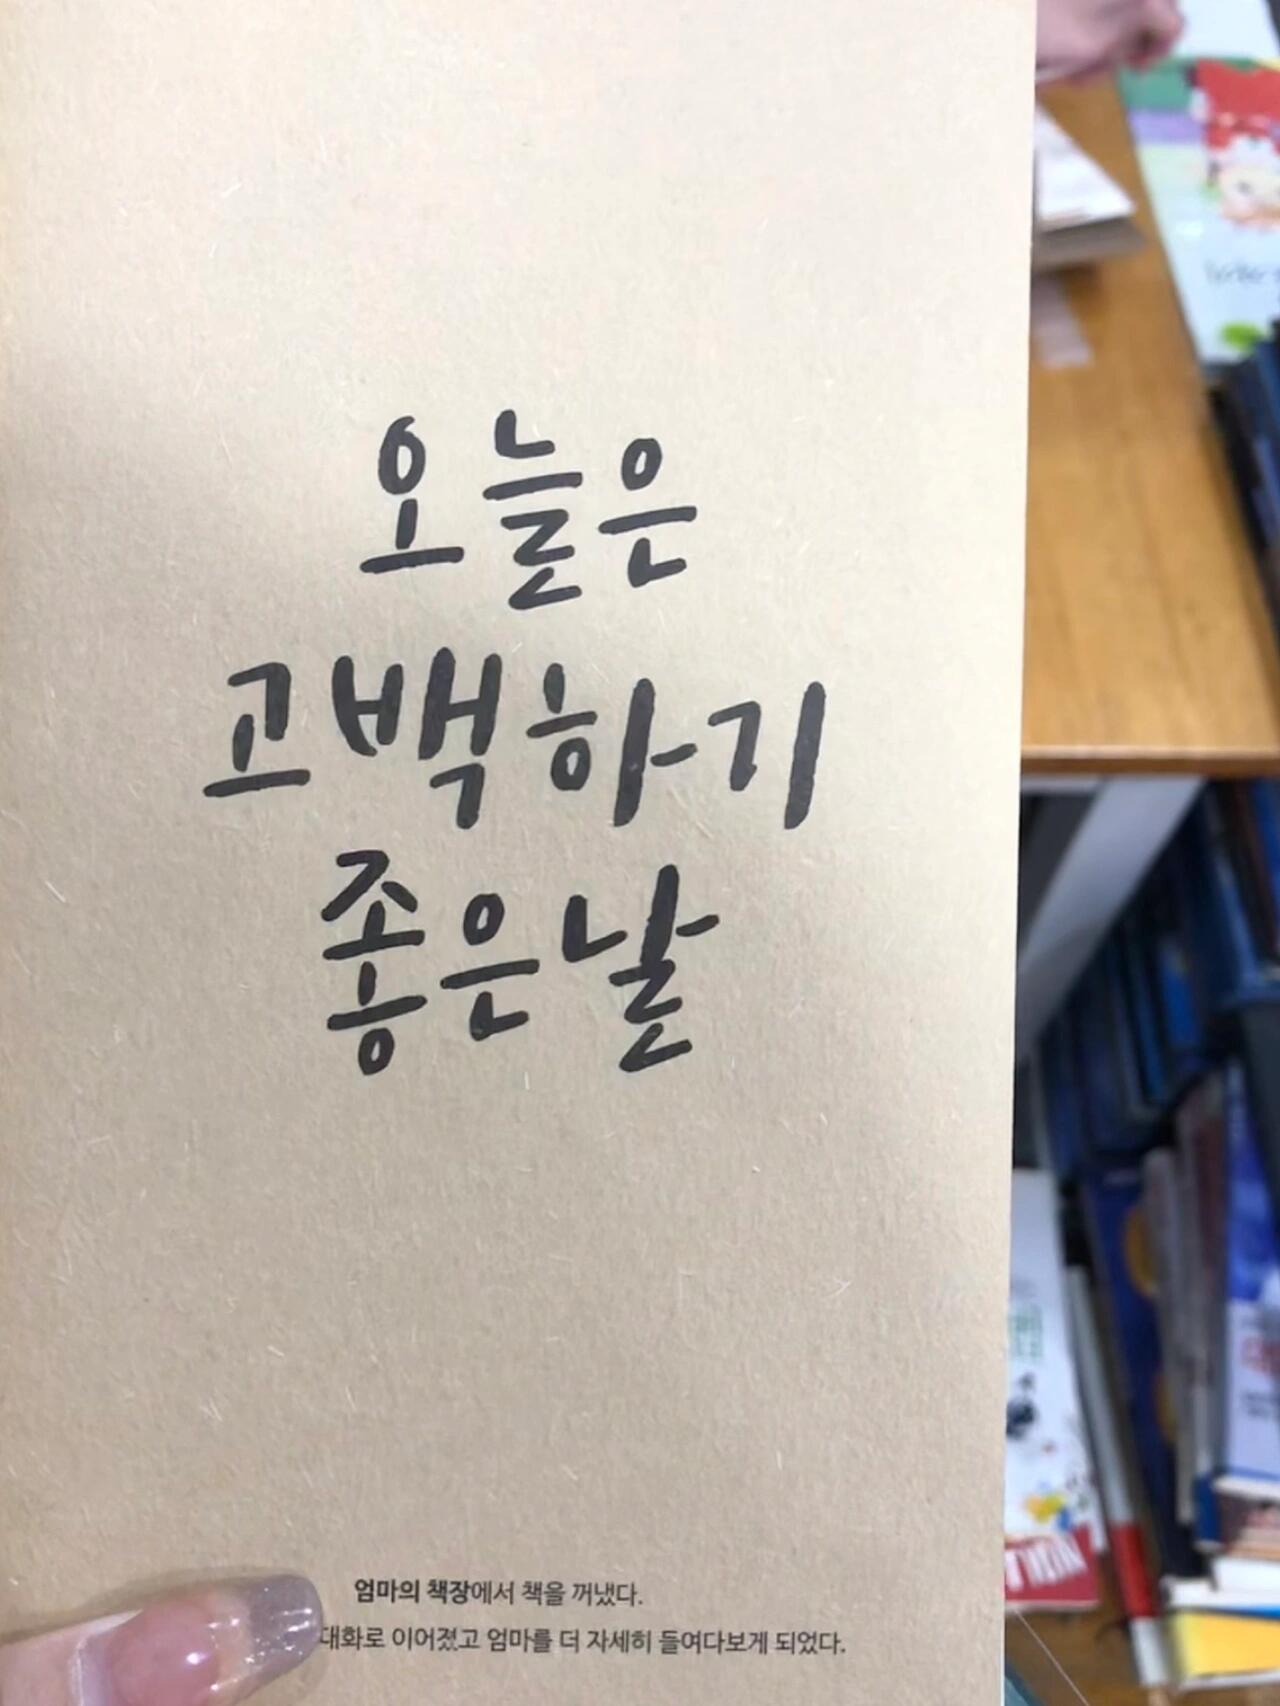 오늘은
고백하기
좋은날
엄마의 책장에서 책을 꺼냈다.
대화로 이어졌고 엄마를 더 자세히 들여다보게 되었다.